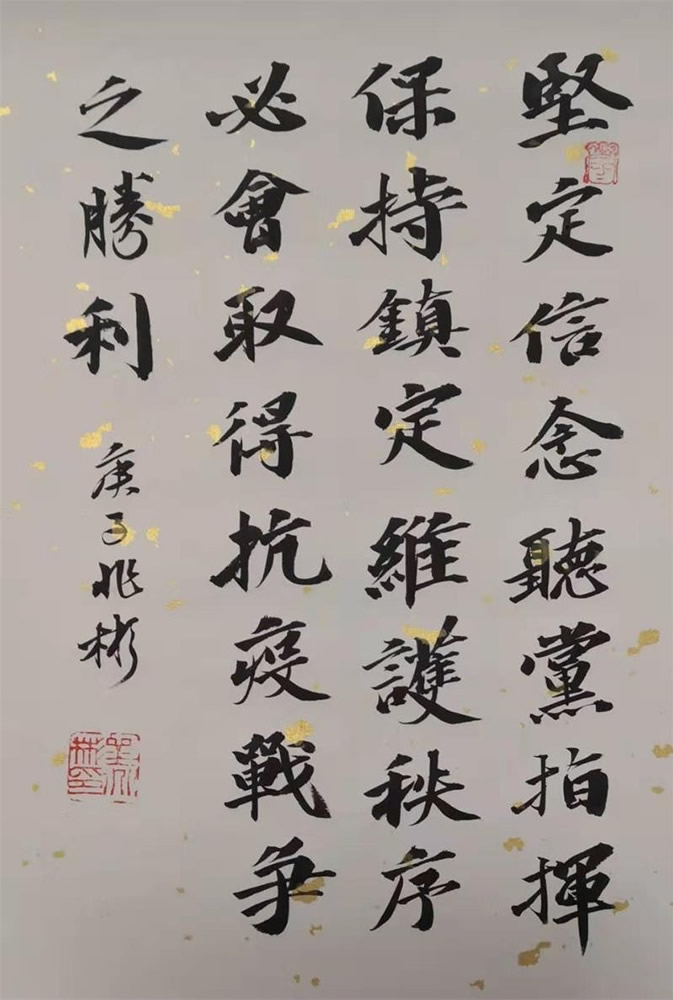 堅定信念聽黨指揮
保持鎮定維護秩序
必會取得抗疫戰爭
之勝利
庚子兆彬